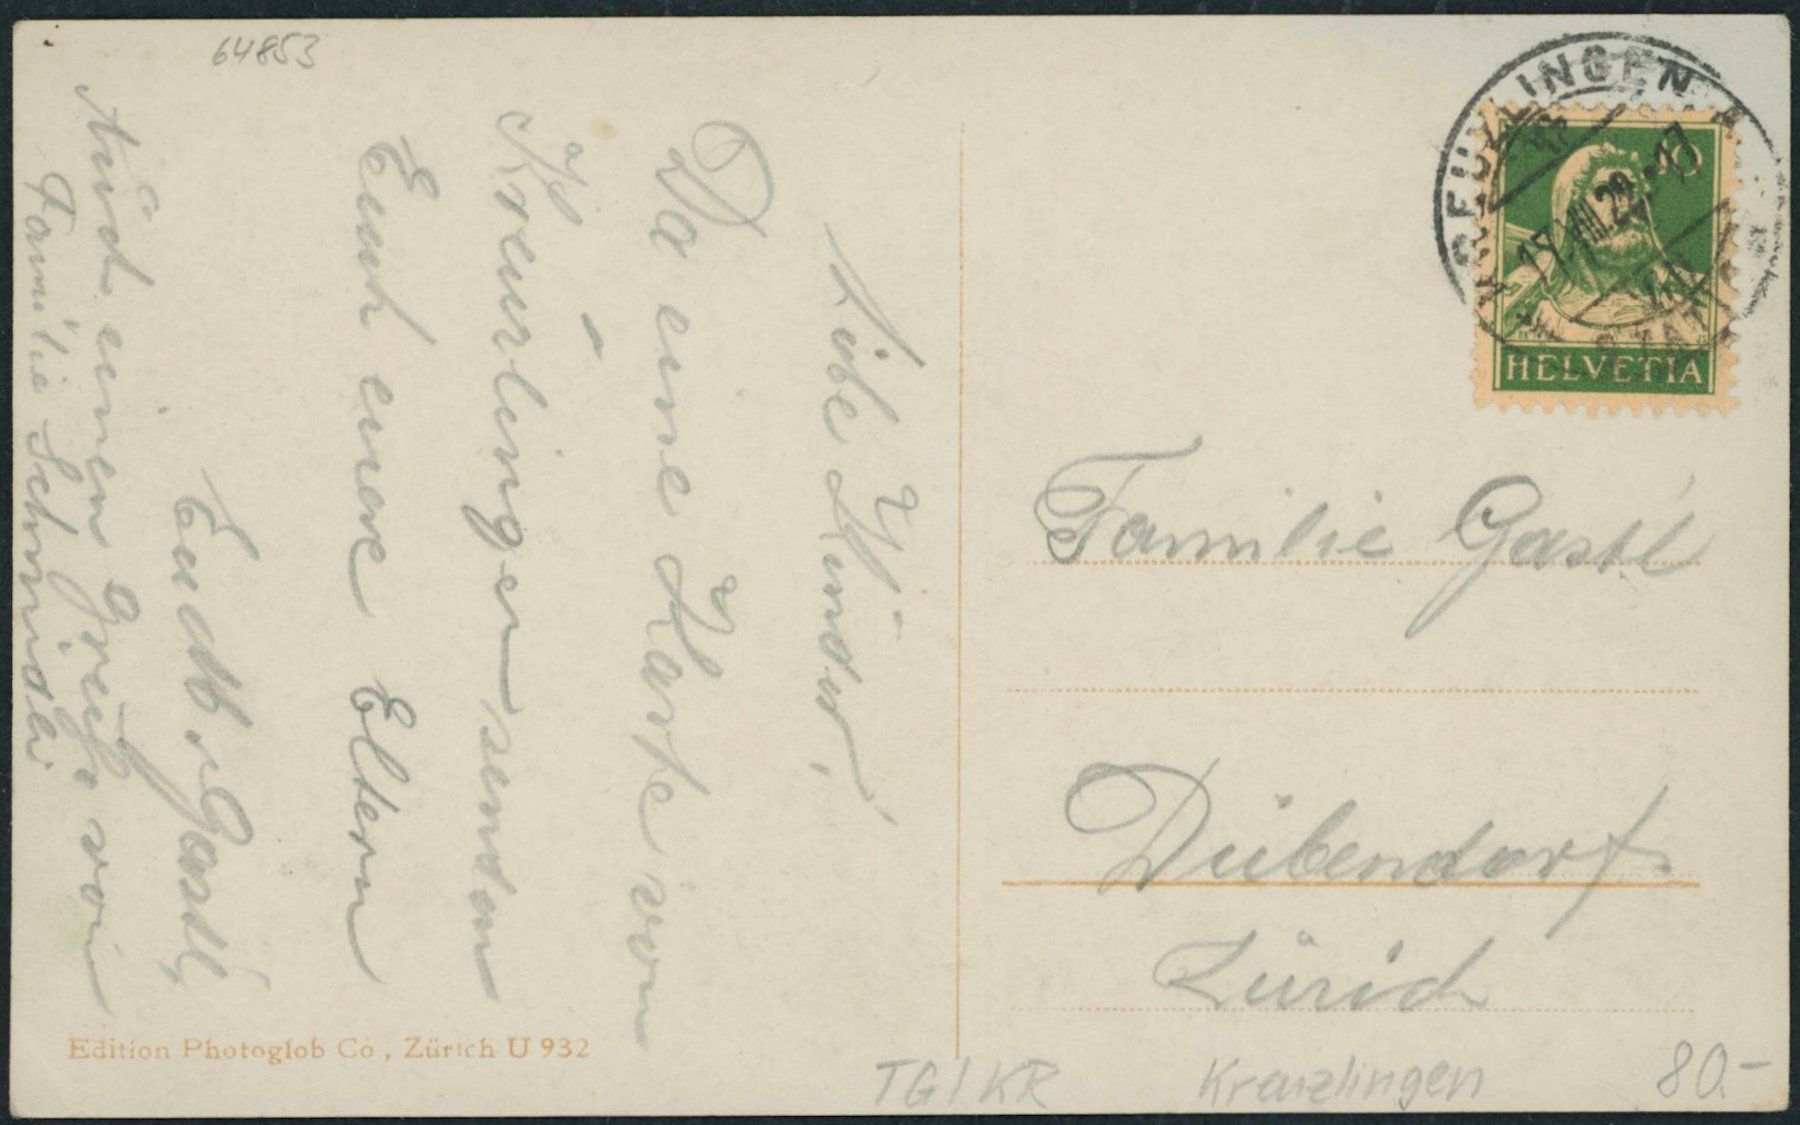 64853
Liebe Kinder,
Da eine Karte von
Kreuzlingen senden
Euch eure Eltern
Gastl,
Auch einen Grüsse von
Familie Schmidli
Edition Photoglob Co., Zürich U 932
KREUZLINGEN
17.VIII.29.-17
10
HELVETIA
Familie Gastl
Dübendorf
Zürich
TG/KR Kreuzlingen 80.-